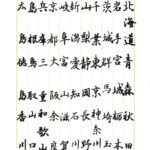 北海道青森
岩手宮城秋田
茨城群馬栃木
千葉東京埼玉
山梨静岡神奈川
新潟愛知長野
岐阜富山石川
京都大阪滋賀
兵庫三重和歌山
島根鳥取山口
広島徳島香川